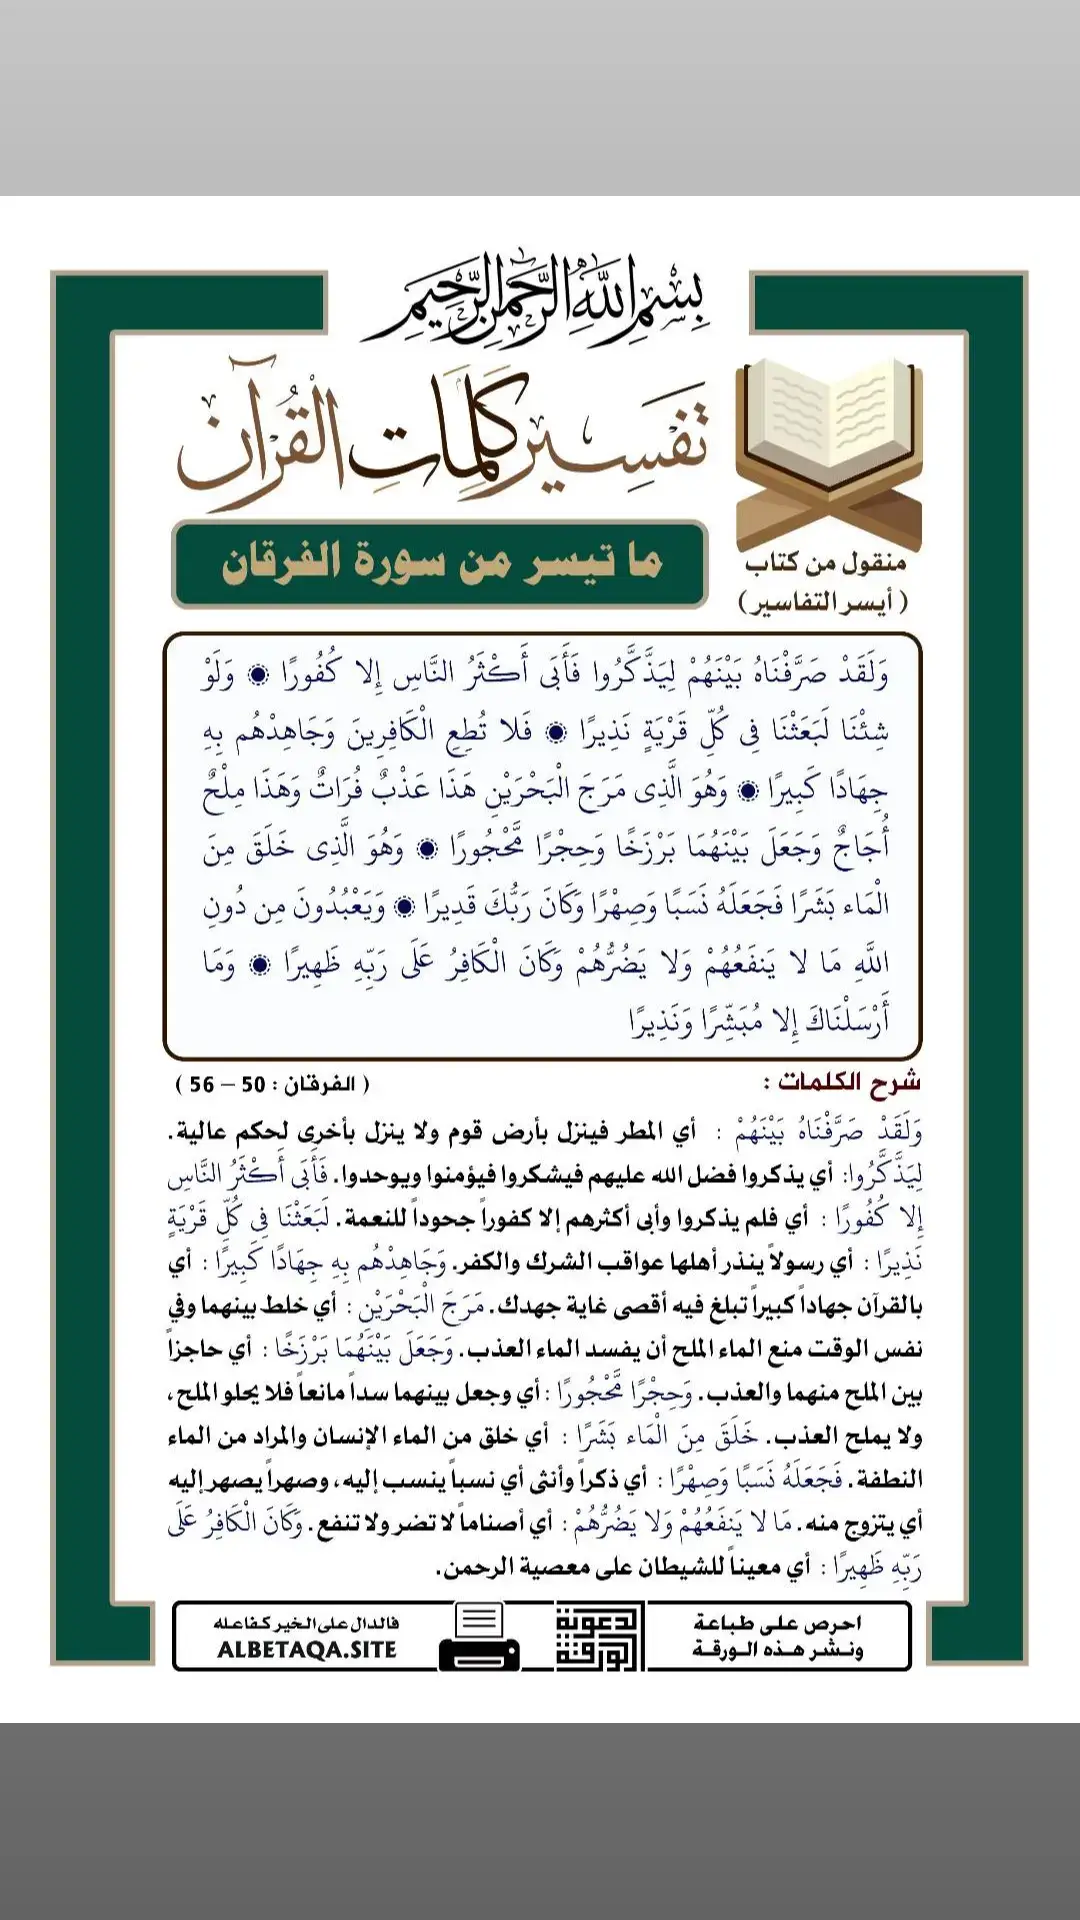 بِسْمِ اللَّهِ الرَّحْمَٰنِ الرَّحِيمِ
تَفْسِير كَلِمَاتِ الْقُرْآن
ما تيسر من سورة الفرقان
منقول من كتاب
( أيسر التفاسير )
وَلَقَدْ صَرَّفْنَاهُ بَيْنَهُمْ لِيَذَّكَّرُوا فَأَبَى أَكْثَرُ النَّاسِ إِلا كُفُورًا ۝ وَلَوْ
شِئْنَا لَبَعَثْنَا فِي كُلِّ قَرْيَةٍ نَذِيرًا ۝ فَلا تُطِعِ الْكَافِرِينَ وَجَاهِدْهُم بِهِ
جِهَادًا كَبِيرًا ۝ وَهُوَ الَّذِي مَرَجَ الْبَحْرَيْنِ هَذَا عَذْبٌ فُرَاتٌ وَهَذَا مِلْحٌ
أُجَاجٌ وَجَعَلَ بَيْنَهُمَا بَرْزَخًا وَحِجْرًا مَّحْجُورًا ۝ وَهُوَ الَّذِي خَلَقَ مِنَ
الْمَاء بَشَرًا فَجَعَلَهُ نَسَبًا وَصِهْرًا وَكَانَ رَبُّكَ قَدِيرًا ۝ وَيَعْبُدُونَ مِن دُونِ
اللَّهِ مَا لا يَنفَعُهُمْ وَلا يَضُرُّهُمْ وَكَانَ الْكَافِرُ عَلَى رَبِّهِ ظَهِيرًا ۝ وَمَا
أَرْسَلْنَاكَ إِلا مُبَشِّرًا وَنَذِيرًا
شرح الكلمات : ( الفرقان : 50 – 56 )
وَلَقَدْ صَرَّفْنَاهُ بَيْنَهُمْ : أي المطر فينزل بأرض قوم ولا ينزل بأخرى لحكم عالية.
لِيَذَّكَّرُوا: أي يذكروا فضل الله عليهم فيشكروا فيؤمنوا ويوحدوا. فَأَبَى أَكْثَرُ النَّاسِ
إِلا كُفُورًا : أي فلم يذكروا وأبى أكثرهم إلا كفوراً جحوداً للنعمة. لَبَعَثْنَا فِي كُلِّ قَرْيَةٍ
نَذِيرًا : أي رسولاً ينذر أهلها عواقب الشرك والكفر. وَجَاهِدْهُم بِهِ جِهَادًا كَبِيرًا : أي
بالقرآن جهاداً كبيراً تبلغ فيه أقصى غاية جهدك. مَرَجَ الْبَحْرَيْنِ : أي خلط بينهما وفي
نفس الوقت منع الماء الملح أن يفسد الماء العذب. وَجَعَلَ بَيْنَهُمَا بَرْزَخًا : أي حاجزاً
بين الملح منهما والعذب. وَحِجْرًا مَّحْجُورًا : أي وجعل بينهما سداً مانعاً فلا يحلو الملح،
ولا يملح العذب. خَلَقَ مِنَ الْمَاء بَشَرًا : أي خلق من الماء الإنسان والمراد من الماء
النطفة. فَجَعَلَهُ نَسَبًا وَصِهْرًا : أي ذكراً وأنثى أي نسباً ينسب إليه، وصهراً يصهر إليه
أي يتزوج منه. مَا لا يَنفَعُهُمْ وَلا يَضُرُّهُمْ : أي أصناماً لا تضر ولا تنفع. وَكَانَ الْكَافِرُ عَلَى
رَبِّهِ ظَهِيرًا : أي معيناً للشيطان على معصية الرحمن.
احرص على طباعة
ونشر هذه الورقة
الدعوية
الورقة
فالدال على الخير كفاعله
ALBETAQA.SITE